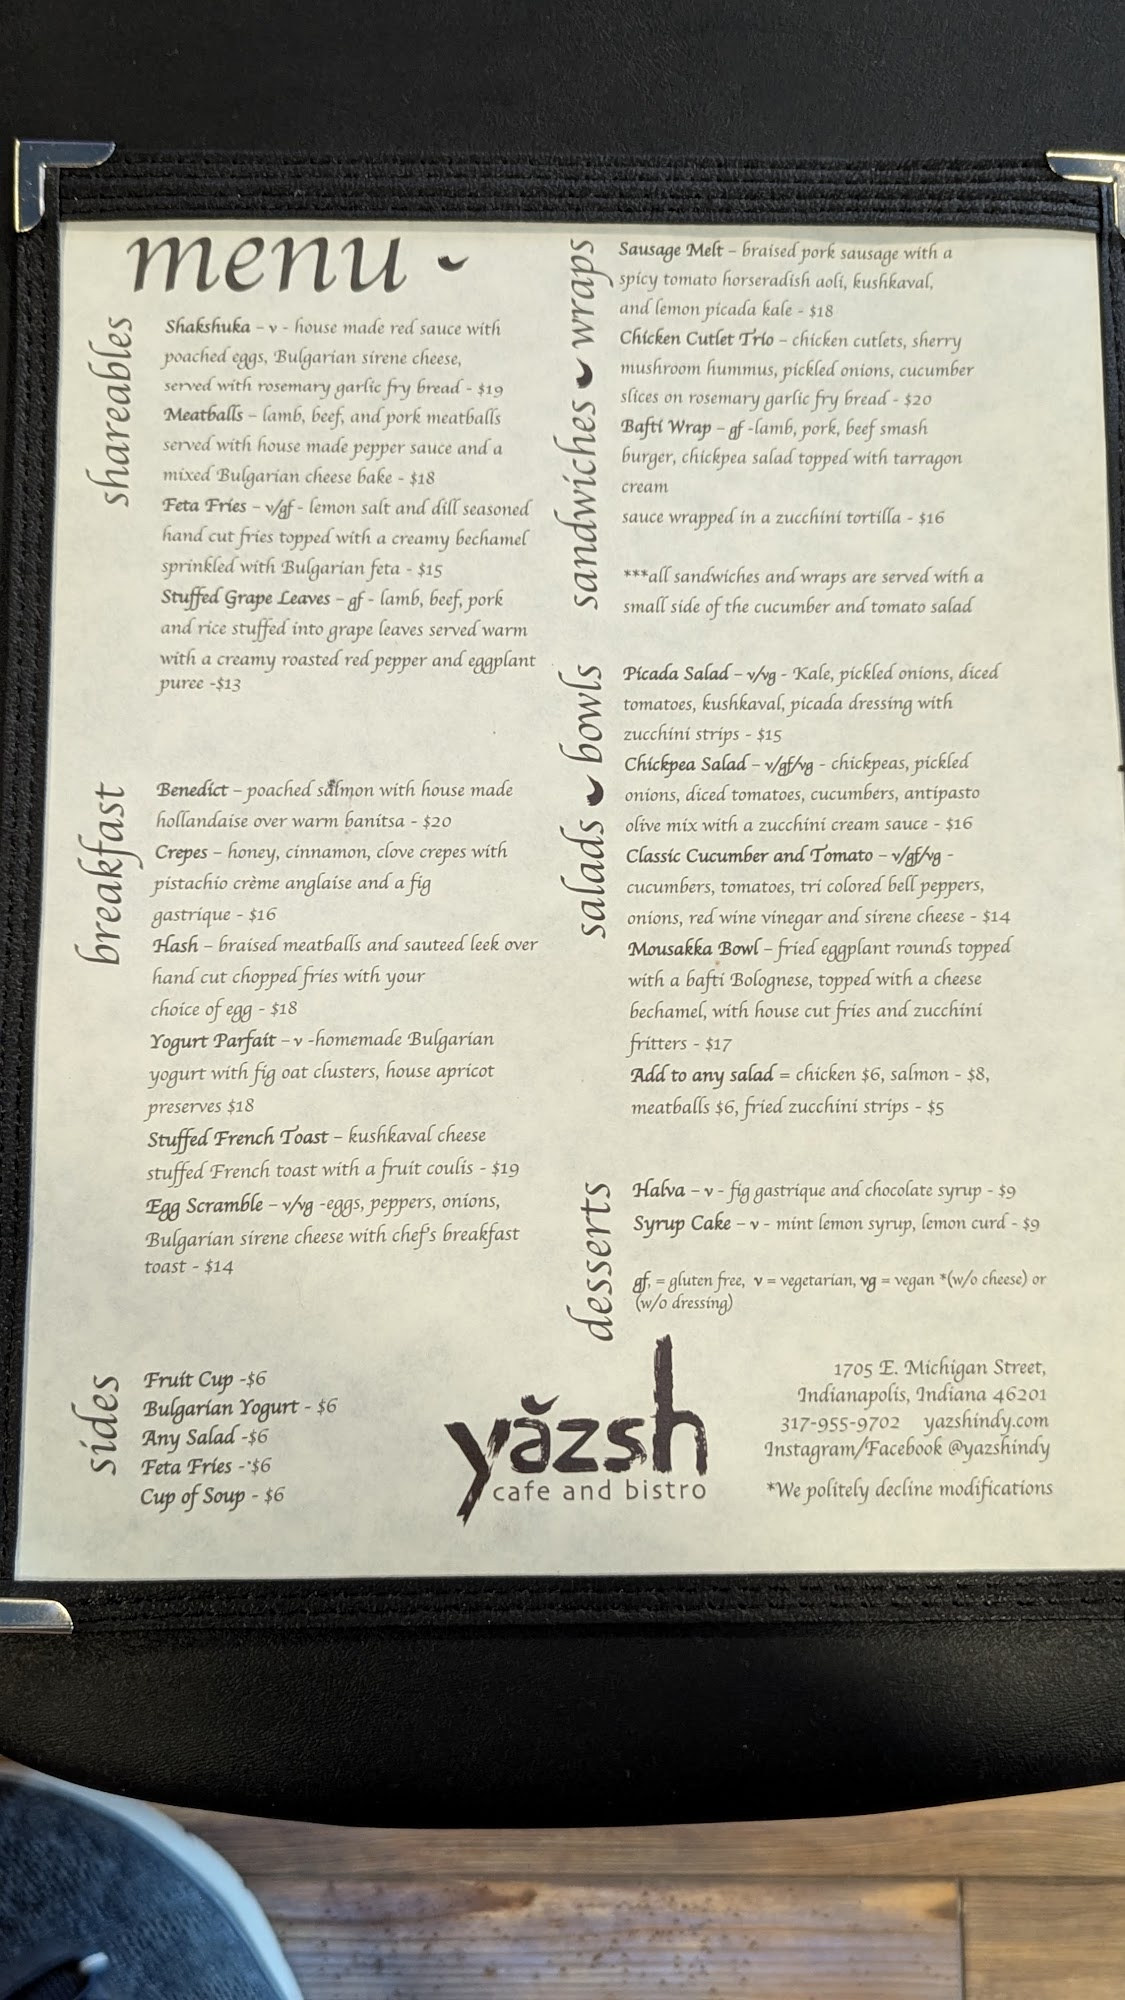 menu
shareables
Shakshuka – v - house made red sauce with
poached eggs, Bulgarian sirene cheese,
served with rosemary garlic fry bread - $19
Meatballs – lamb, beef, and pork meatballs
served with house made pepper sauce and a
mixed Bulgarian cheese bake - $18
Feta Fries – v/gf - lemon salt and dill seasoned
hand cut fries topped with a creamy bechamel
sprinkled with Bulgarian feta - $15
Stuffed Grape Leaves – gf - lamb, beef, pork
and rice stuffed into grape leaves served warm
with a creamy roasted red pepper and eggplant
puree -$13
breakfast
Benedict – poached salmon with house made
hollandaise over warm banitsa - $20
Crepes – honey, cinnamon, clove crepes with
pistachio crème anglaise and a fig
gastrique - $16
Hash – braised meatballs and sauteed leek over
hand cut chopped fries with your
choice of egg - $18
Yogurt Parfait – v -homemade Bulgarian
yogurt with fig oat clusters, house apricot
preserves $18
Stuffed French Toast – kushkaval cheese
stuffed French toast with a fruit coulis - $19
Egg Scramble – v/vg -eggs, peppers, onions,
Bulgarian sirene cheese with chef's breakfast
toast - $14
sides
Fruit Cup -$6
Bulgarian Yogurt - $6
Any Salad -$6
Feta Fries -$6
Cup of Soup - $6
sandwiches wraps
Sausage Melt – braised pork sausage with a
spicy tomato horseradish aoli, kushkaval,
and lemon picada kale - $18
Chicken Cutlet Trio – chicken cutlets, sherry
mushroom hummus, pickled onions, cucumber
slices on rosemary garlic fry bread - $20
Bafti Wrap – gf -lamb, pork, beef smash
burger, chickpea salad topped with tarragon
cream
sauce wrapped in a zucchini tortilla - $16
***all sandwiches and wraps are served with a
small side of the cucumber and tomato salad
salads bowls
Picada Salad – v/vg - Kale, pickled onions, diced
tomatoes, kushkaval, picada dressing with
zucchini strips - $15
Chickpea Salad – v/gf/vg - chickpeas, pickled
onions, diced tomatoes, cucumbers, antipasto
olive mix with a zucchini cream sauce - $16
Classic Cucumber and Tomato – v/gf/vg -
cucumbers, tomatoes, tri colored bell peppers,
onions, red wine vinegar and sirene cheese - $14
Mousakka Bowl – fried eggplant rounds topped
with a bafti Bolognese, topped with a cheese
bechamel, with house cut fries and zucchini
fritters - $17
Add to any salad = chicken $6, salmon - $8,
meatballs $6, fried zucchini strips - $5
desserts
Halva – v - fig gastrique and chocolate syrup - $9
Syrup Cake – v - mint lemon syrup, lemon curd - $9
gf, = gluten free, v = vegetarian, vg = vegan *(w/o cheese) or
(w/o dressing)
yăzsh
cafe and bistro
1705 E. Michigan Street,
Indianapolis, Indiana 46201
317-955-9702 yazshindy.com
Instagram/Facebook @yazshindy
*We politely decline modifications